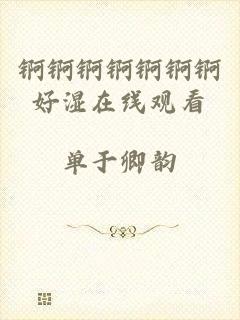 锕锕锕锕锕锕锕
好湿在线观看
单于卿韵